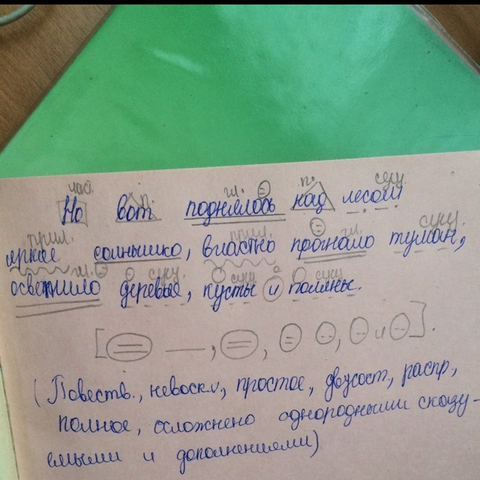 час. п. гл. п. сущ.
Но вот поднялось над лесом
прил. прил. гл. сущ.
яркое солнышко, властно прогнало туман,
гл. сущ. сущ. сущ.
осветило деревья, кусты и поляны.
[ , , , и ].
(Повеств., невоскл, простое, двусост, распр,
полное, осложнено однородными сказу-
емыми и дополнениями)